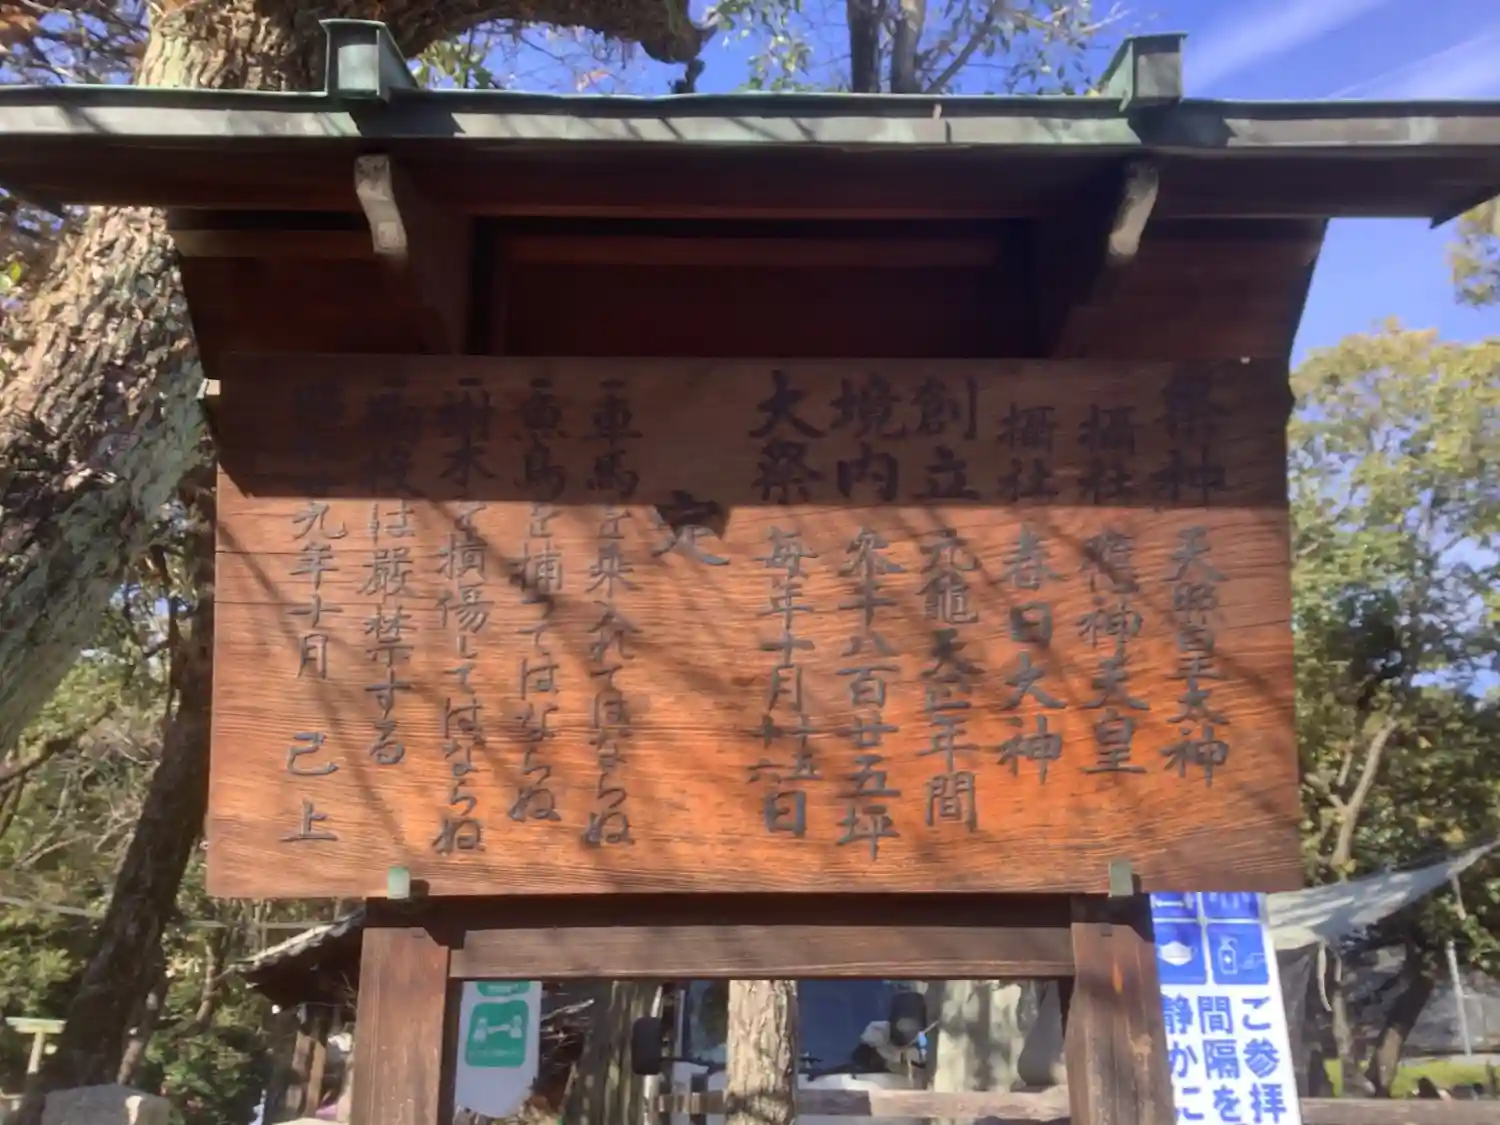 祭神 天照皇大神
攝社 應神天皇
攝社 春日大神
創立 元龜天正年間
境内 参千八百廿五坪
大祭 毎年十月十五十六日
定
一車馬を乗入れてはならぬ
一魚鳥を捕つてはならぬ
一樹木を損傷してはならぬ
は厳禁する
九年十月 己上
ご参拝
間隔を
静かに